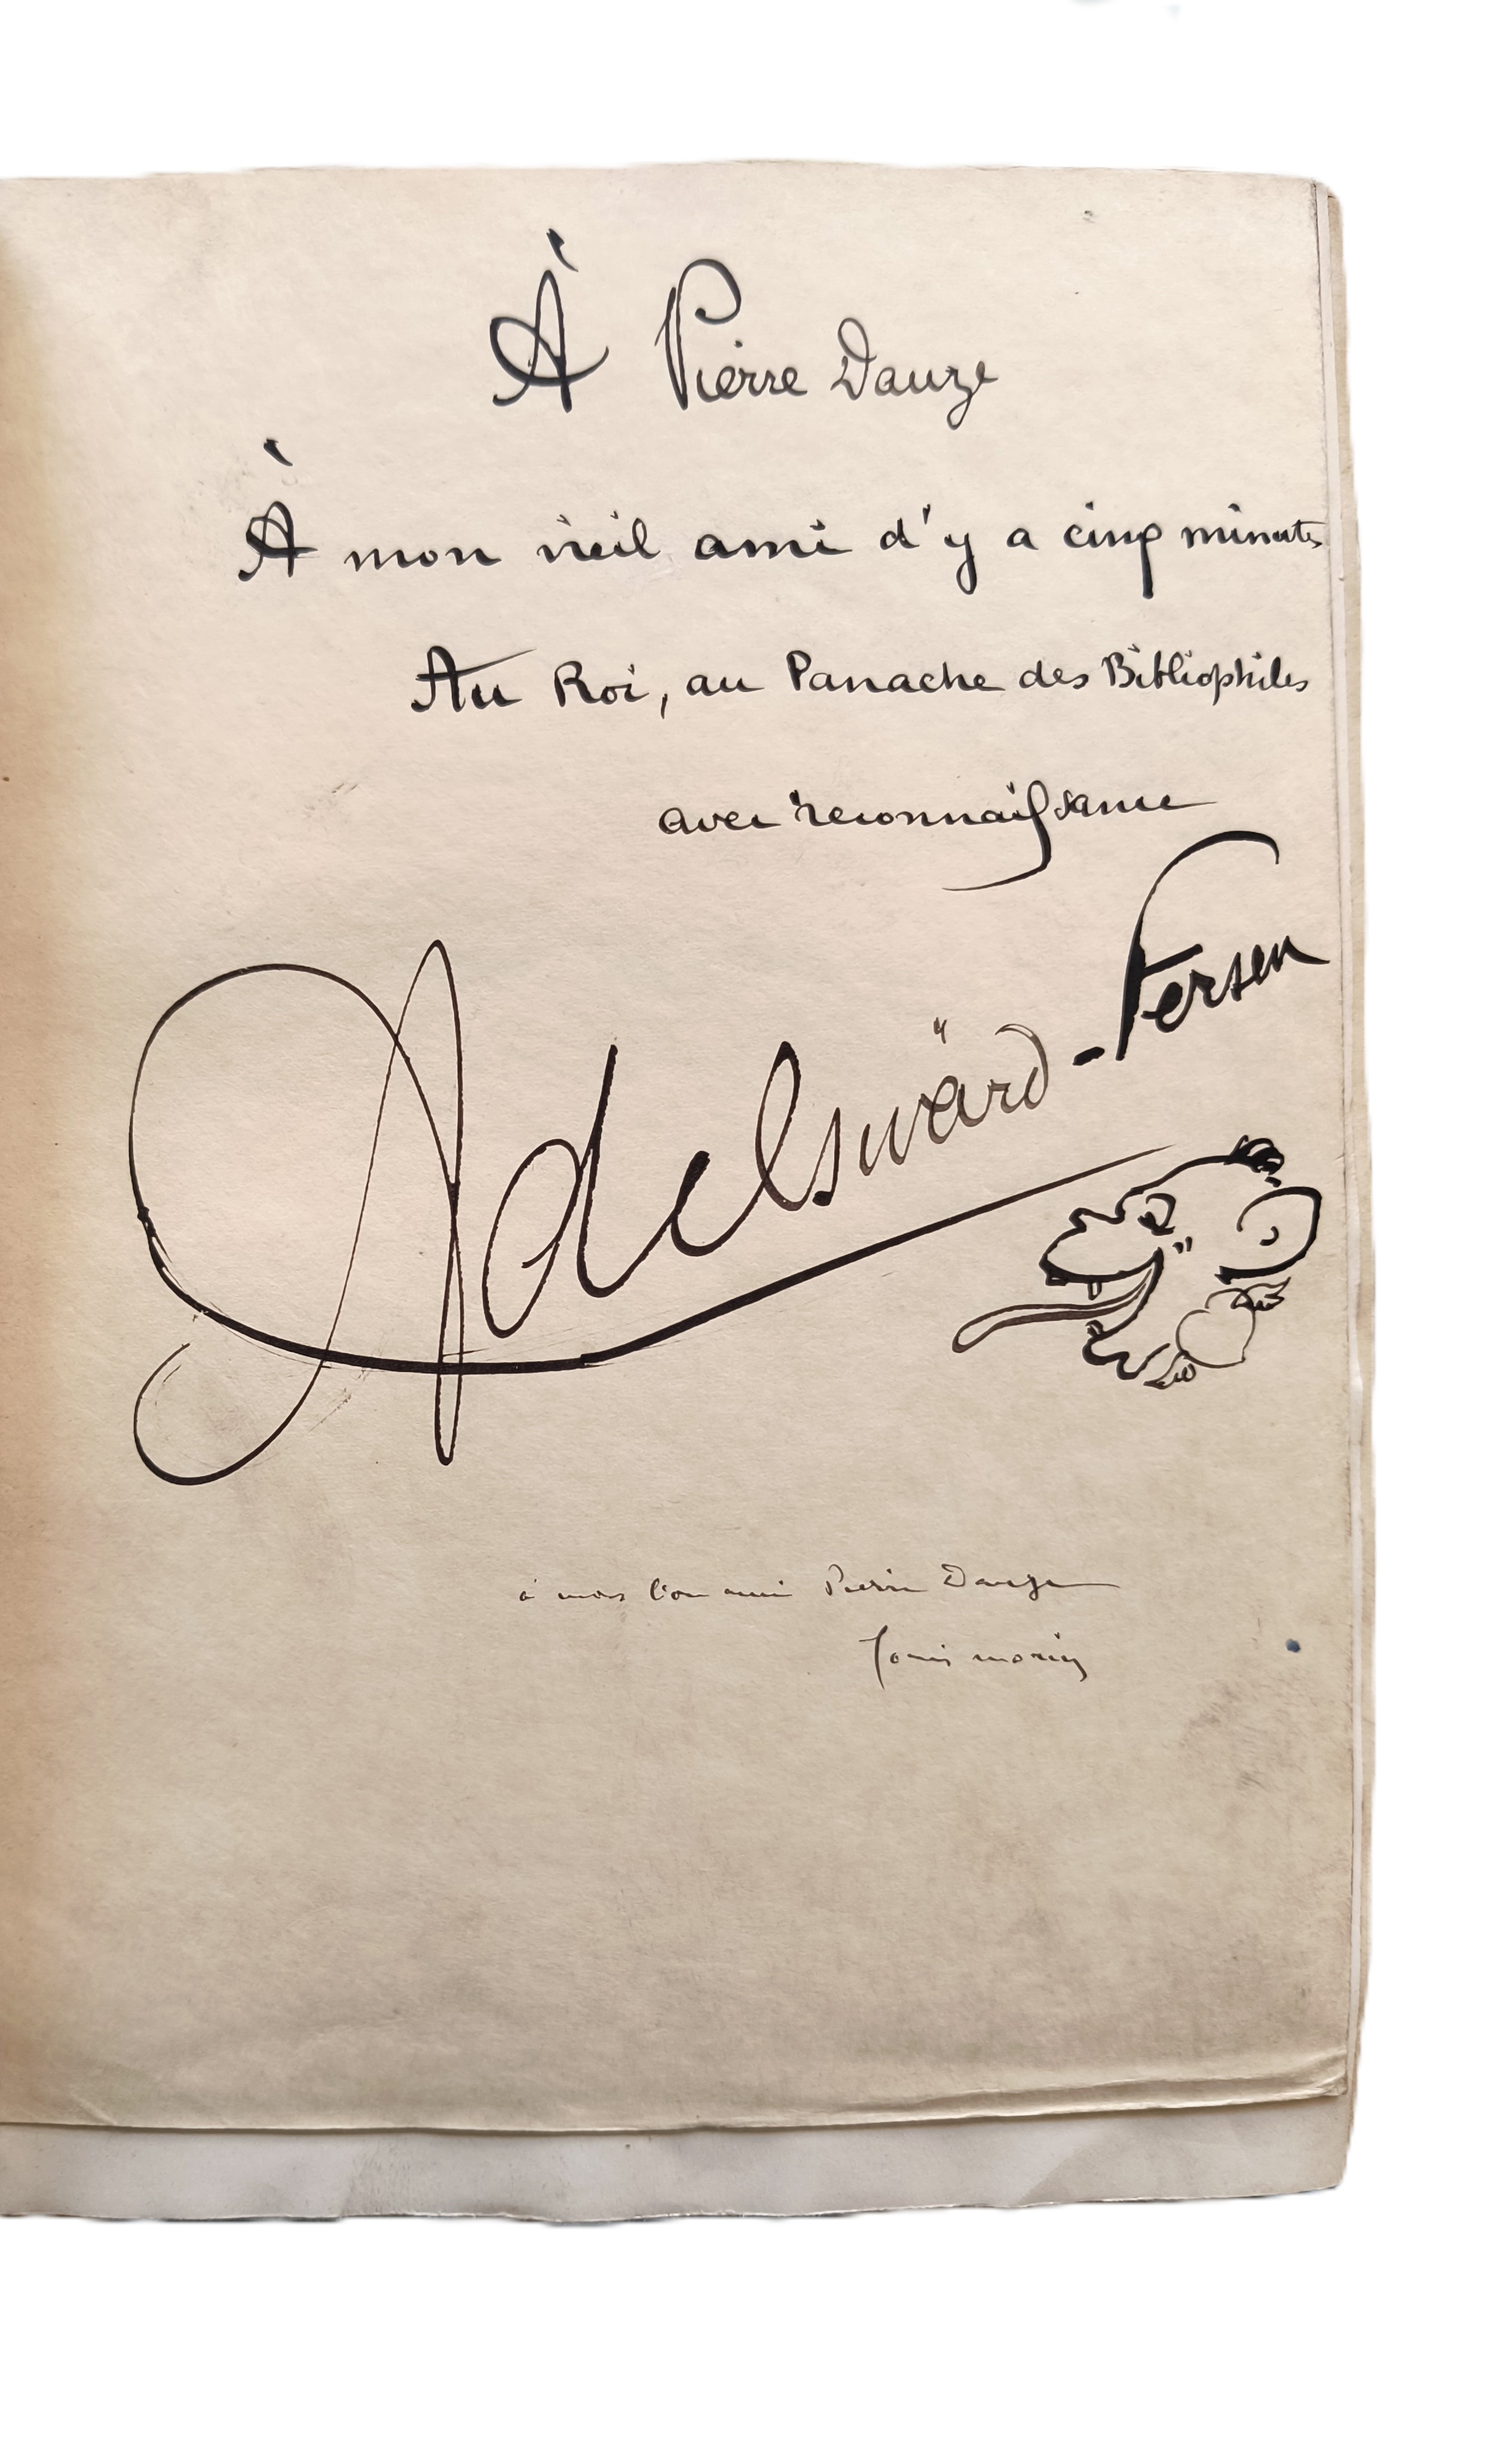 À Pierre Dauze
À mon vieil ami d'y a cinq minutes
Au Roi, au Panache des Bibliophiles
avec reconnaissance
Adelswärd-Fersen
à mon bon ami Pierre Dauze
Louis morin